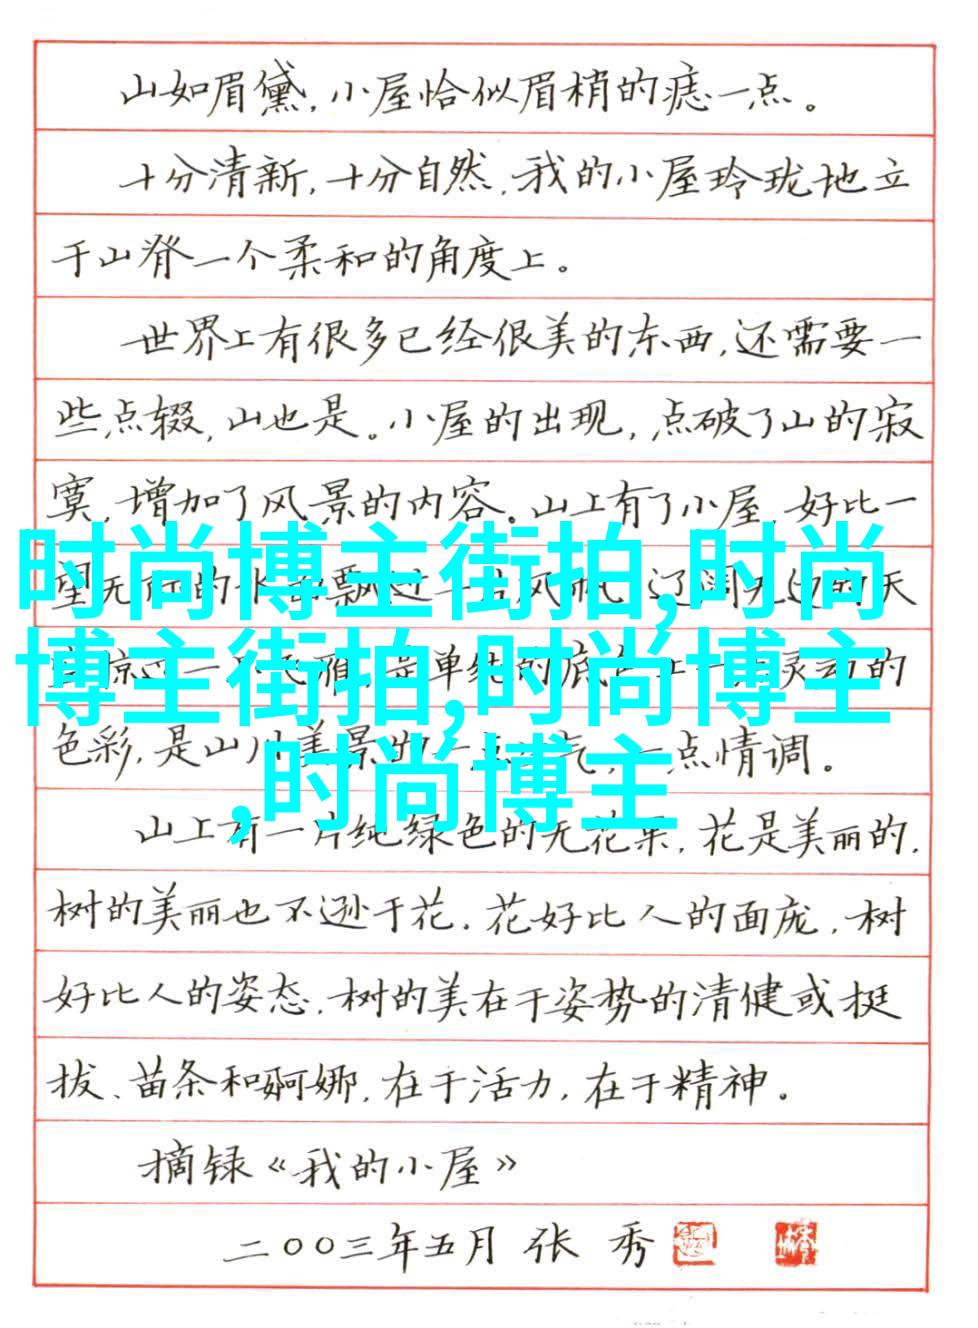 山如眉黛，小屋恰似眉梢的痣一点。
十分清新，十分自然，我的小屋玲珑地立
于山脊一个柔和的角度上。
世界上有很多已经很美的东西，还需要一
些点缀，山也是。小屋的出现，点破了山的寂
寞，增加了风景的内容。山上有了小屋，好比一
时尚博主街拍,时尚
望无的水飘过一片风帆，辽阔无边的天
博主街拍,时尚博主
掠过一飞雁，是单纯的底上一灵动的
色彩，是山川美景的一点气，一点情调。
,时尚博主
山上有一片纯绿色的无花果，花是美丽的，
树的美丽也不逊于花。花好比人的面庞，树
好比人的姿态。树的美在于姿势的清健或挺
拔、苗条和婀娜，在于活力，在于精神。
摘录《我的小屋》
二〇〇三年五月 张 秀